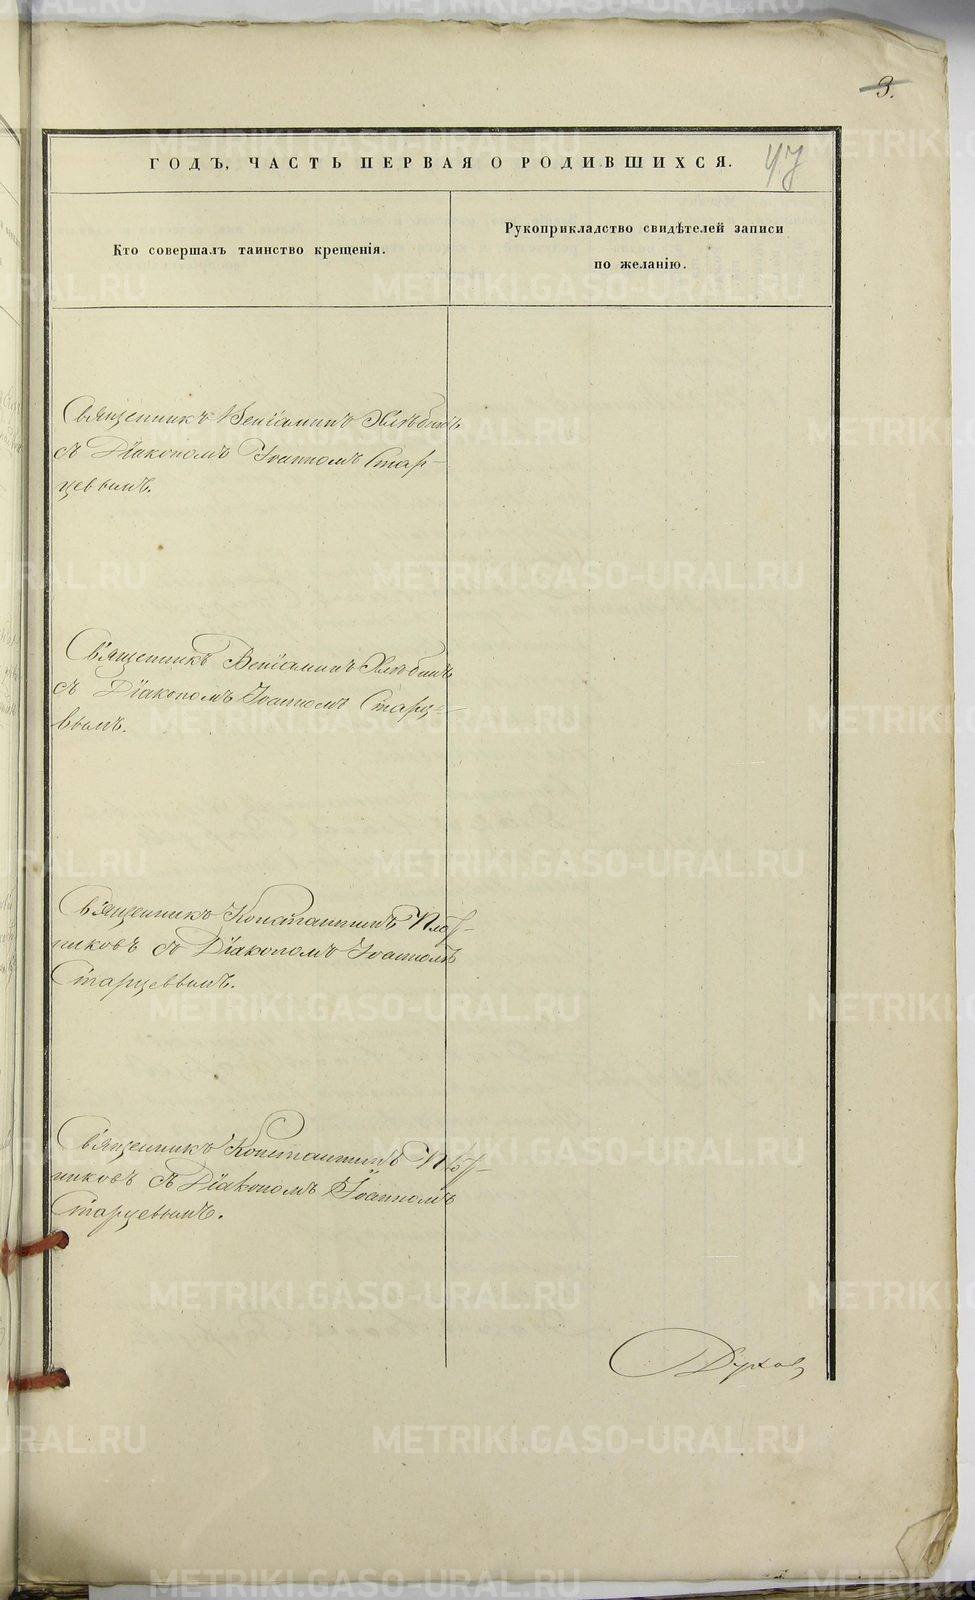 3.
ГОДЪ, ЧАСТЬ ПЕРВАЯ О РОДИВШИХСЯ.
47
Кто совершалъ таинство крещенія.
Рукоприкладство свидѣтелей записи
по желанію.
Священникъ Веніаминъ Хлѣбинъ
съ Діакономъ Іоанномъ Стар-
цевымъ.
Священникъ Веніаминъ Хлѣбинъ
съ Діакономъ Іоанномъ Старце-
вымъ.
Священникъ Константинъ Плот-
никовъ съ Діакономъ Іоанномъ
Старцевымъ.
Священникъ Константинъ Плот-
никовъ съ Діакономъ Іоанномъ
Старцевымъ.
Духов
METRIKI.GASO-URAL.RU